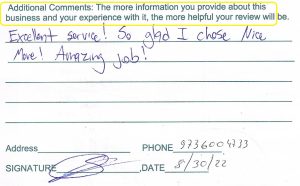 Additional Comments: The more information you provide about this
business and your experience with it, the more helpful your review will be.
Excellent service! So glad I chose Nice
Move! Amazing job!
Address PHONE 9736004733
SIGNATURE ,DATE 8/30/22